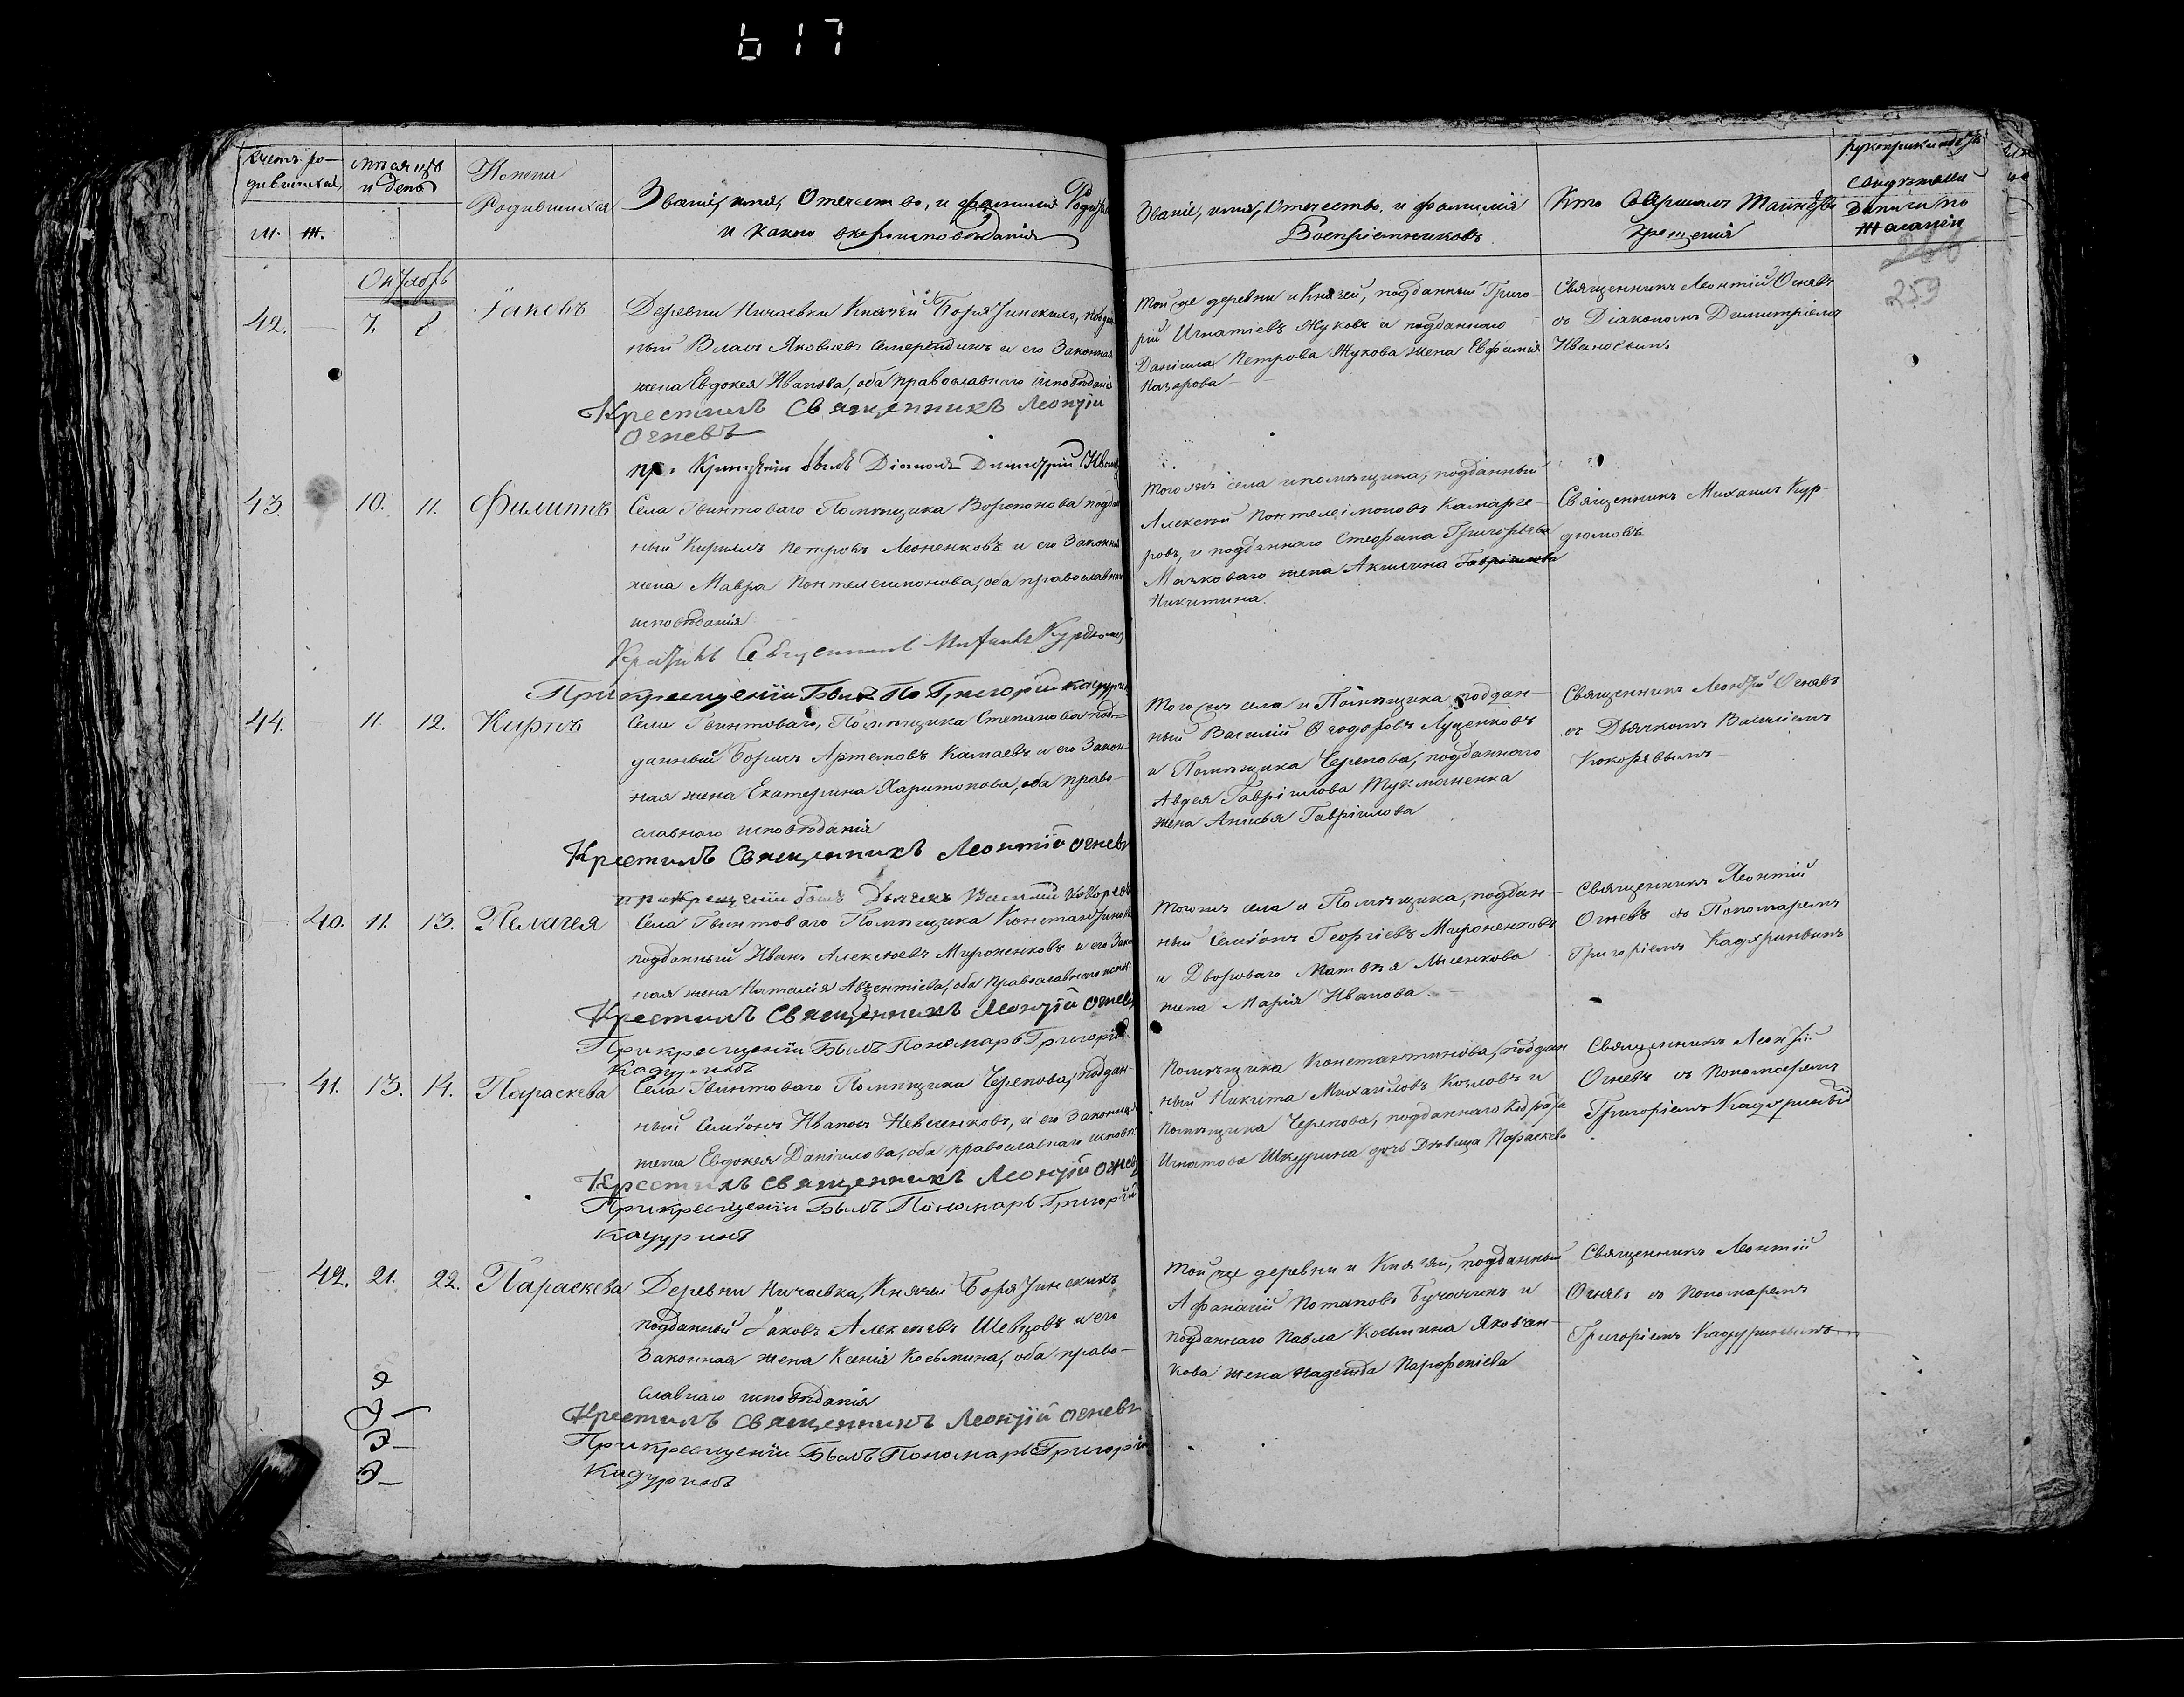 617
Счетъ ро-
дившихся
м. ж.
Мѣсяцъ
и день
Имена
Родившихся
Званіе, имя, Отечество, и фамилія
и какого вѣроисповѣданія
Званіе, имя, Отчество, и фамилія
Воспріемниковъ
Кто Совершалъ Таинство
крещенія
свидѣтелей
записи по
желанію
259
Октябрь
42. 7. 8. Іаковъ
Деревни Ничаевки Князей Борятинскихъ, поддан
ный Власъ Яковлевъ Смерендинъ и его Законная
жена Евдокея Иванова, оба православнаго исповѣданія
Крестилъ Священникъ Леонтій
Огневъ
при Крещеніи былъ Діаконъ Димитрій
Той же деревни и Князей, подданный Григо-
рій Игнатіевъ Жуковъ и подданнаго
Даніила Петрова Жукова жена Евфимія
Назарова
Священникъ Леонтій Огневъ
съ Діакономъ Димитріемъ
43. 10. 11. Филиппъ
Села Гвинтоваго Помѣщика Воропонова поддан
ный Кириллъ Петровъ Леоненковъ и его Законная
жена Мавра Понтелеимонова, оба православнаго
исповѣданія
Крестилъ Священникъ Михаилъ Курдюмовъ
При крещеніи Былъ По Григорій
Тогожъ села и помѣщика, подданный
Алексѣй Понтелеімоновъ Камарге-
ровъ, и подданнаго Стефана Григорьева
Мачковаго жена Акилина Гавріилова
Никитина.
Священникъ Михаилъ Кур-
дюмовъ
44. 11. 12. Карпъ
Села Гвинтоваго, Помѣщика Степанова под-
данный Борисъ Артемовъ Камаевъ и его Закон-
ная жена Екатерина Харитонова, оба право-
славнаго исповѣданія
Крестилъ Священникъ Леонтій Огневъ
при Крещеніи былъ Дьячекъ Василій Кокоревъ
Тогожъ села и Помѣщика поддан-
ный Василій Ѳеодоровъ Луценковъ
и Помѣщика Черепова, подданнаго
Авдея Гавріилова Тукманенка
жена Анисья Гавріилова
Священникъ Леонтій Огневъ
съ Дьячкомъ Василіемъ
Кокоревымъ
40. 11. 13. Пелагея
Села Гвинтоваго Помѣщика Константинова
подданный Иванъ Алексѣевъ Мироненковъ и его Закон
ная жена Наталія Авѯентіева, оба православнаго испов.
Крестилъ Священникъ Леонтій Огневъ
При крещеніи Былъ Пономарь Григорій
Кадуринъ
Тогожъ села и Помѣщика, поддан-
ный Семіонъ Георгіевъ Мироненковъ
и Двороваго Матвѣя Лысенкова
жена Марія Иванова.
Священникъ Леонтій
Огневъ съ Пономаремъ
Григоріемъ Кадуринымъ
41. 13. 14. Параскева
Села Гвинтоваго Помѣщика Черепова, поддан-
ный Семіонъ Ивановъ Невленковъ, и его Законная
жена Евдокея Даніилова, оба православнаго исповѣ.
Крестилъ Священникъ Леонтій Огневъ
При крещеніи Былъ Пономарь Григорій
Кадуринъ
Помѣщика Константинова, поддан
ный Никита Михайловъ Козловъ и
Помѣщика Черепова, подданнаго Кодрата
Игнатова Шкурина дочь Дѣвица Параскева
Священникъ Леонтій
Огневъ съ Пономаремъ
Григоріемъ Кадуринымъ
42. 21. 22. Параскева
Деревни Ничаевки, Князей Борятинскихъ
подданный Іаковъ Алексѣевъ Шевцовъ и его
Законная жена Ксенія Косьмина, оба право-
славнаго исповѣданія
Крестилъ Священникъ Леонтій Огневъ
При крещеніи Былъ Пономарь Григорій
Кадуринъ
Той же деревни и Князей, подданный
Афанасій Потаповъ и
подданнаго Павла Косьмина Яковен-
кова жена Надежда Парфеніева
Священникъ Леонтій
Огневъ съ Пономаремъ
Григоріемъ Кадуринымъ